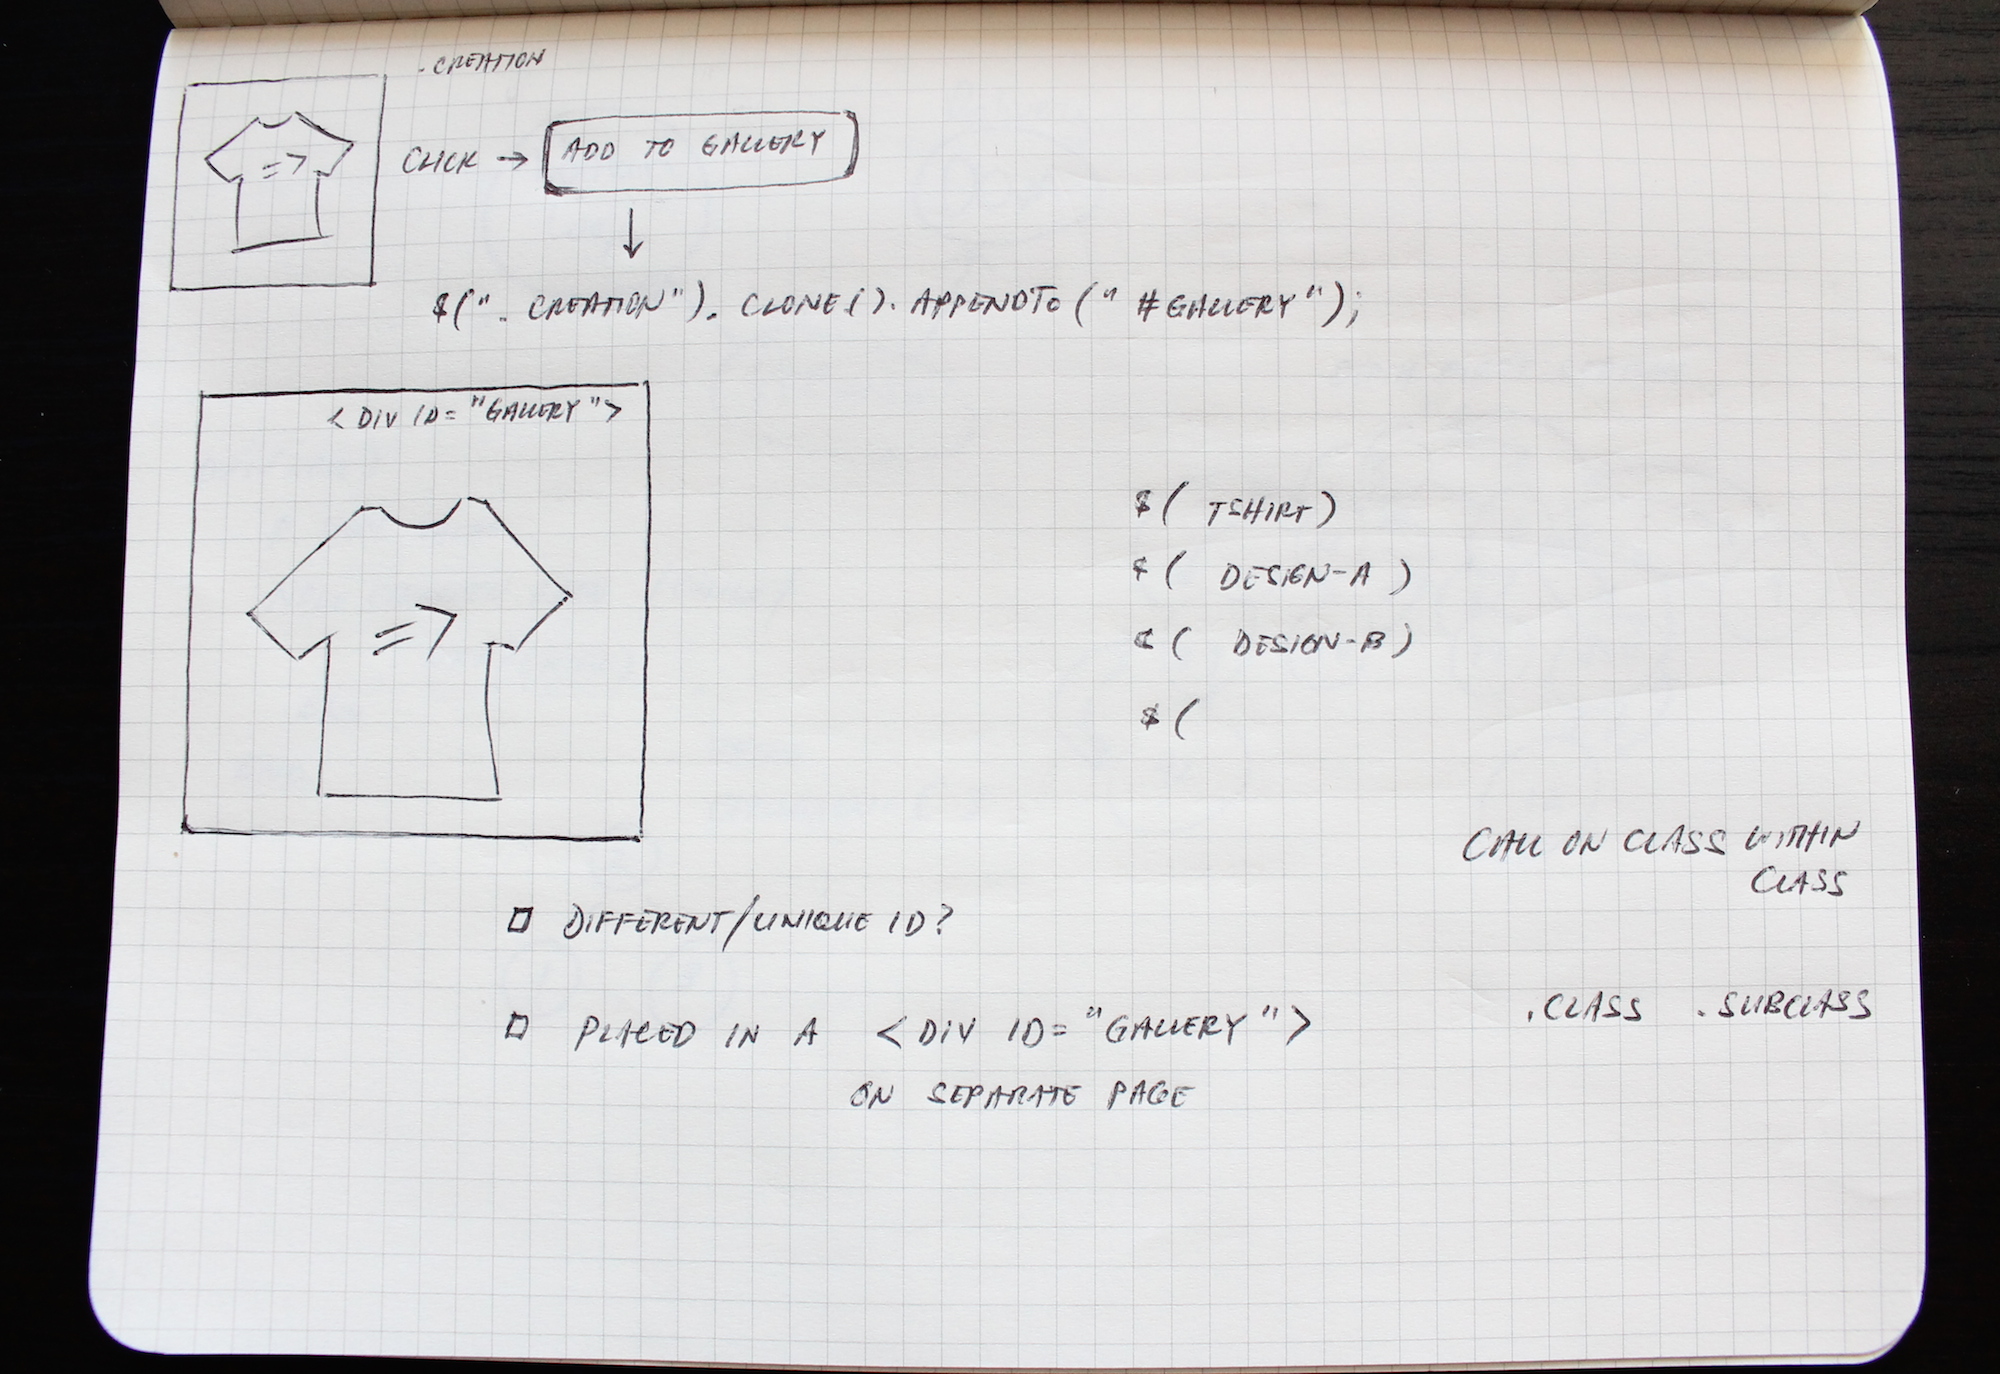 .CREATION
=>
CLICK → ADD TO GALLERY
↓
$(".CREATION").CLONE().APPENDTO("#GALLERY");
<DIV ID="GALLERY">
=>
$( TSHIRT)
$( DESIGN-A )
$( DESIGN-B)
$(
CALL ON CLASS WITHIN
CLASS
□ DIFFERENT/UNIQUE ID?
.CLASS .SUBCLASS
□ PLACED IN A <DIV ID="GALLERY">
ON SEPARATE PAGE